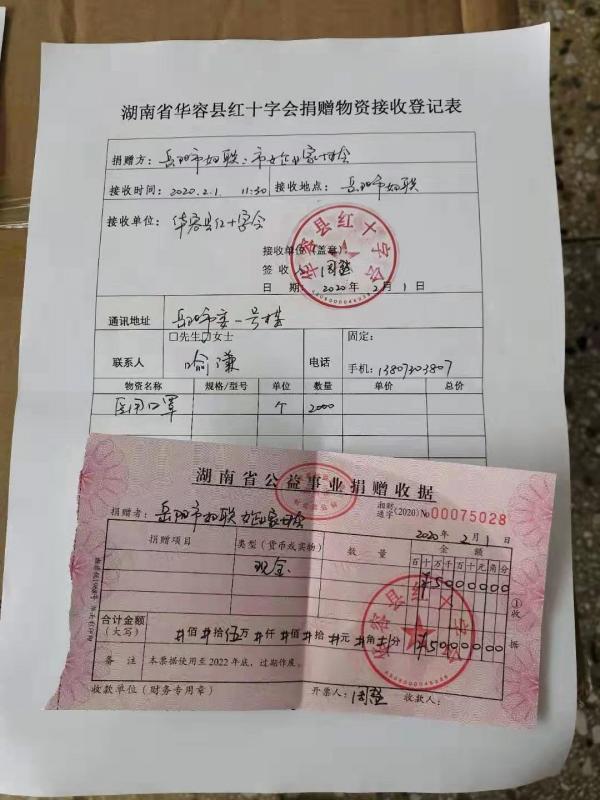 湖南省华容县红十字会捐赠物资接收登记表
捐赠方：岳阳市妇联：市女企业家协会
接收时间：2020.2.1 11:30 接收地点：岳阳市妇联
接收单位：华容县红十字会
接收单位（盖章）
签收
日期：2020年2月1日
华容县红十字会
通讯地址 岳阳市委一号楼
□先生□女士
联系人 喻谦 电话 固定：
手机：
物资名称 规格/型号 单位 数量 单价 总价
医用口罩 个 2000
湖南省公益事业捐赠收据
湘财通字(2020) No 00075028
捐赠者：岳阳市妇联 女企业家协会
2020年2月1日
捐赠项目 类型（货币或实物） 数量 金额
百十万千百十元角分
现金 ¥5000000
合计金额（大写） #佰#拾伍万#仟#佰#拾#元#角#分 ¥5000000
备注 本票据使用至2022年底，过期作废。
收款单位（财务专用章） 开票人： 收款人：
①收据
华容县红十字会